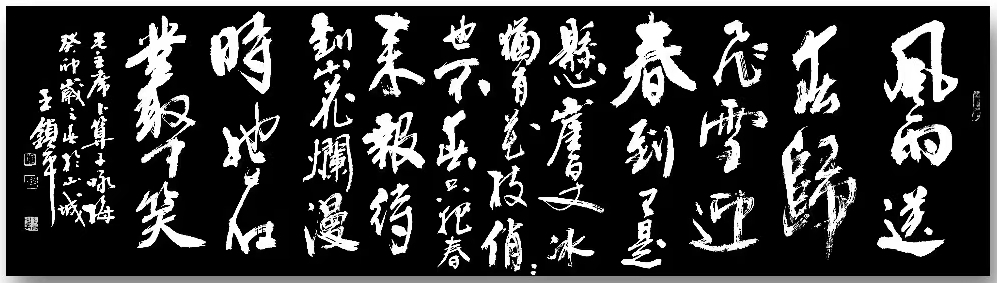 風雨送
春歸
飛雪迎
春到已是
懸崖百丈冰
猶有花枝俏:
也不春只把春
來報待
到山花爛漫
時她在
叢中笑
毛主席卜算子咏梅
癸卯歲之春於山城
王鎮